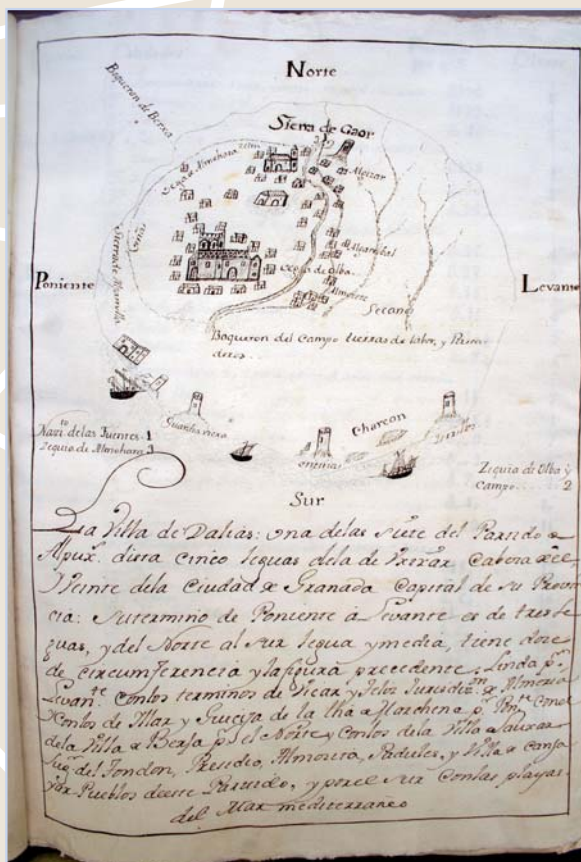 Norte
Boqueron de Berxa
Sierra de Gaor
Vega de Almohara
Alcizar
Sierra de
Poniente
Levante
Vega de Olba
Secano
Boqueron del Campo tierras de labor, y
deros
Nazi.to de las Fuentes.. 1
Zequia de Almohara 3
Guardis viexa
Charcon
Zequia de Olba y
Campo........2
Sur
La Villa de Dalias: una de las siete del Partido
Alpux.s dista cinco leguas de la de
Veinte de la Ciudad de Granada Capital de su Provin
cia: su termino de Poniente à Levante es de tres le
guas, y del Norte al sur legua y media, tiene doce
de circumferencia y la figura precedente. Linda p.r
Levan.te con los terminos de Vicar y Felix Jurisdiz.on de Almeria
y con los de Illar y de la tha de Marchena p.r Pon.te con el
de la Villa de Berja p.r el Norte y con los de la Villa de Lauxar
del Fondon, Presidio, Almozeta, Padules, y Villa de Canja
yar Pueblos de este Partido, y por el sur con las playas
del Mar mediterraneo